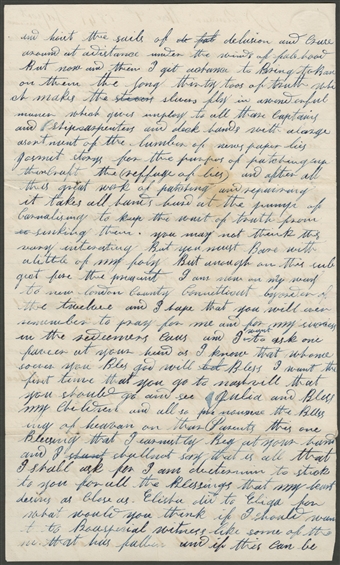 and hoist the sails of delusion and Cruse
around at adistance under the winds of falshood
But now and then I get achance to Bring to bar
on them the long thirty toos of truth whi
ch makes the slivers fly in awonderful
maner which gives employ to all those Captains
and Shipcarpenters and deck hands with alarge
asortment of the lumber of newspaper lies
for the purpos of patching up
the of lies and after all
this great work of patching and repairing
it takes all hands hard at the pumps of
to keep the wait of truth from
sinking them. you may not think this
very interesting But you must Bare with
alittle of my foly But anough on this sub
ject for the present I am now on my way
to new London County Connetticut by order of
the twelve and I hope that you will ever
remember to pray for me and for my
in the redeemers Caus am I to ask one
favor at your hand as I know that whome
soever you Bles god will Bless I want the
first time that you go to that
you should go and see Julia and Bless
my Children and all so pronounce the Bless
ing of heaven on thar Parents this one
Blessing that I earnestly Beg at your hand
and I shall say that is all that
I shall ask for I am determin to stick
to you for all the Blessings that my heart
desires as Close as Elisha did to Eliga for
what would you think if I should wan
t to Be aspecial witness like some of the
that has fallen and if this can be